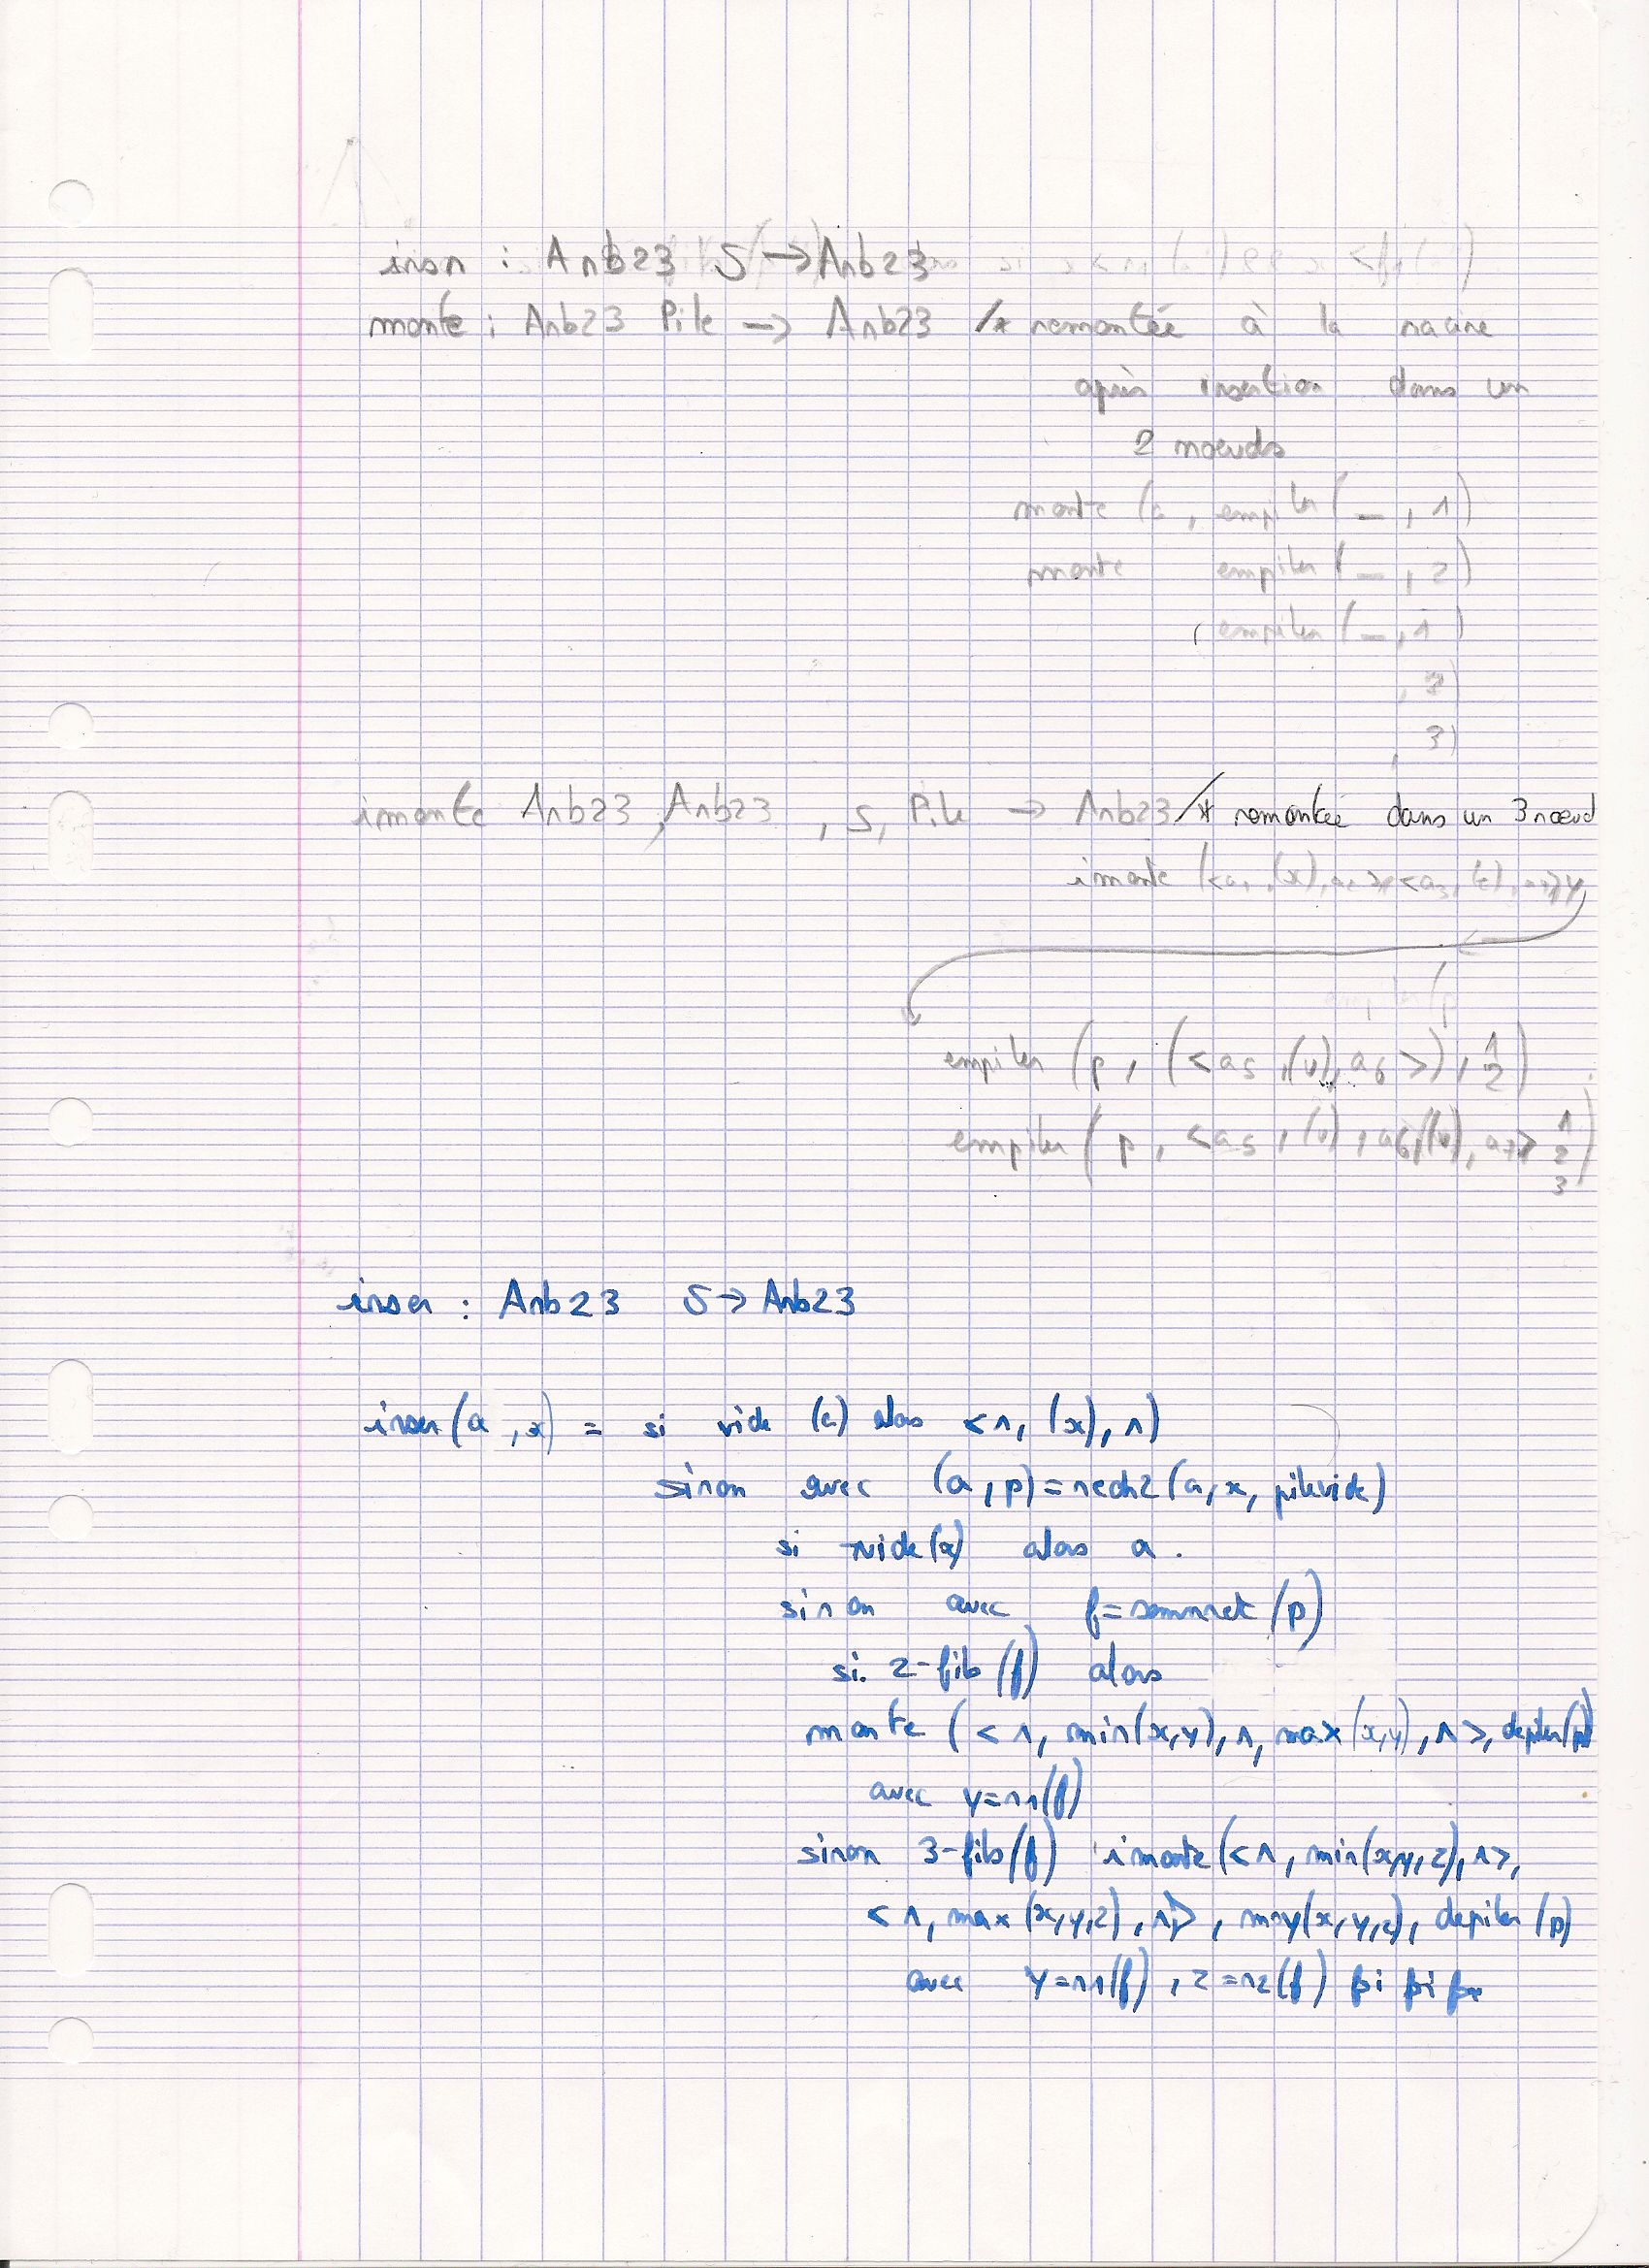 inser : Arb23 S → Arb23
monte : Arb23 Pile → Arb23 /* remontée à la racine
après insertion dans un
2 noeuds
monte (a, empiler(_, 1)
monte empiler(_, 2)
, empiler(_, 1)
, 2)
, 3)
imonte Arb23, Arb23, S, Pile → Arb23 /* remontée dans un 3 noeud
imonte (<a1, (x), a2>, <a3, (z), >, y,
empiler (p, (<a5, (u), a6>), 1 2)
empiler (p, <a5, (u), a6, (v), a7> 1 2 3)
inser : Arb23 S → Arb23
inser(a, x) = si vide (a) alors <Λ, (x), Λ)
sinon avec (a, p) = rech2(a, x, pilevide)
si ¬vide(a) alors a.
sinon avec f = sommet(p)
si 2-fils(f) alors
monte (<Λ, min(x,y), Λ, max(x,y), Λ>, depiler(p)
avec y=r1(f)
sinon 3-fils(f) imonte(<Λ, min(x,y,z), Λ>,
<Λ, max(x,y,z), Λ>, moy(x,y,z), depiler(p)
avec y=r1(f), z=r2(f) fsi fsi fsi